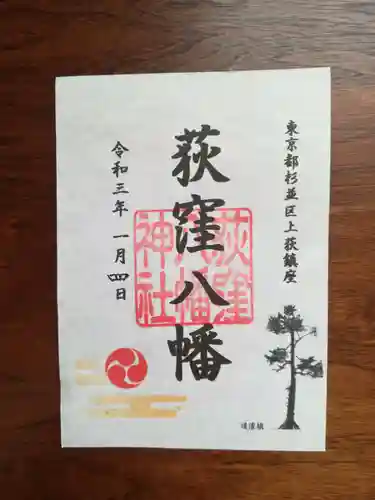 東京都杉並区上荻鎮座
荻窪八幡
荻窪
八幡
神社
令和三年 一月四日